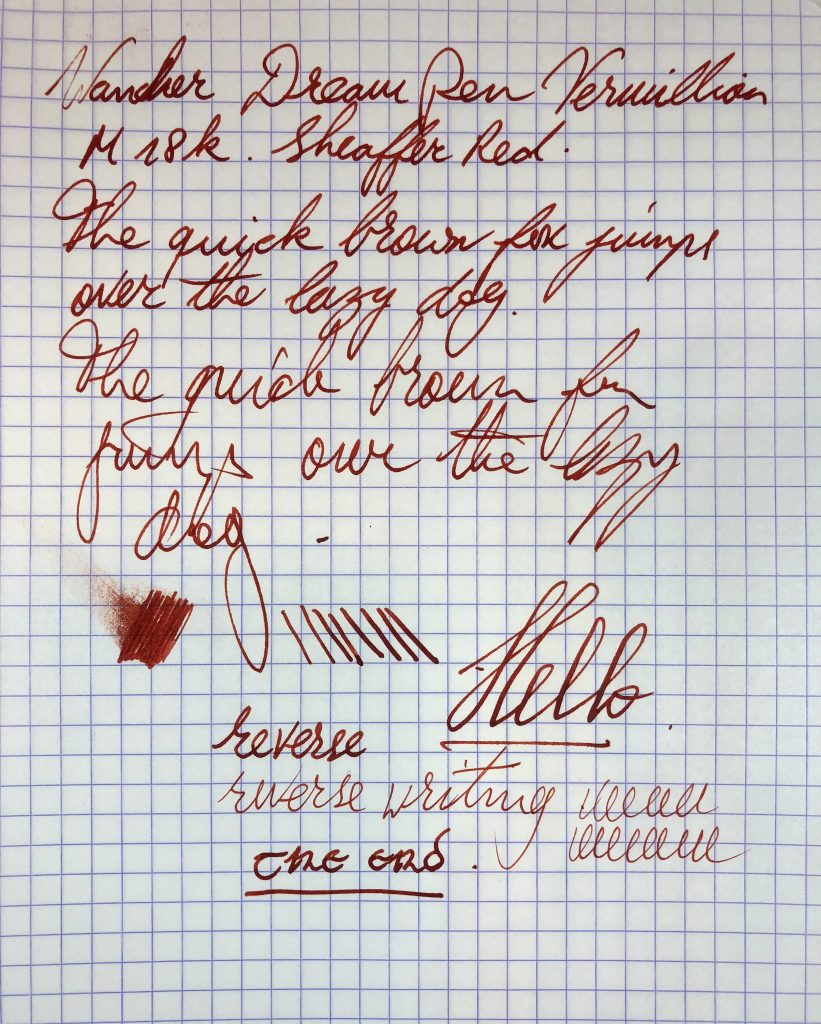 Wancher Dream Pen Vermillion
M 18k. Sheaffer Red.
The quick brown fox jumps
over the lazy dog.
The quick brown fox
jumps over the lazy
dog.
Hello.
reverse
reverse writing
THE END.